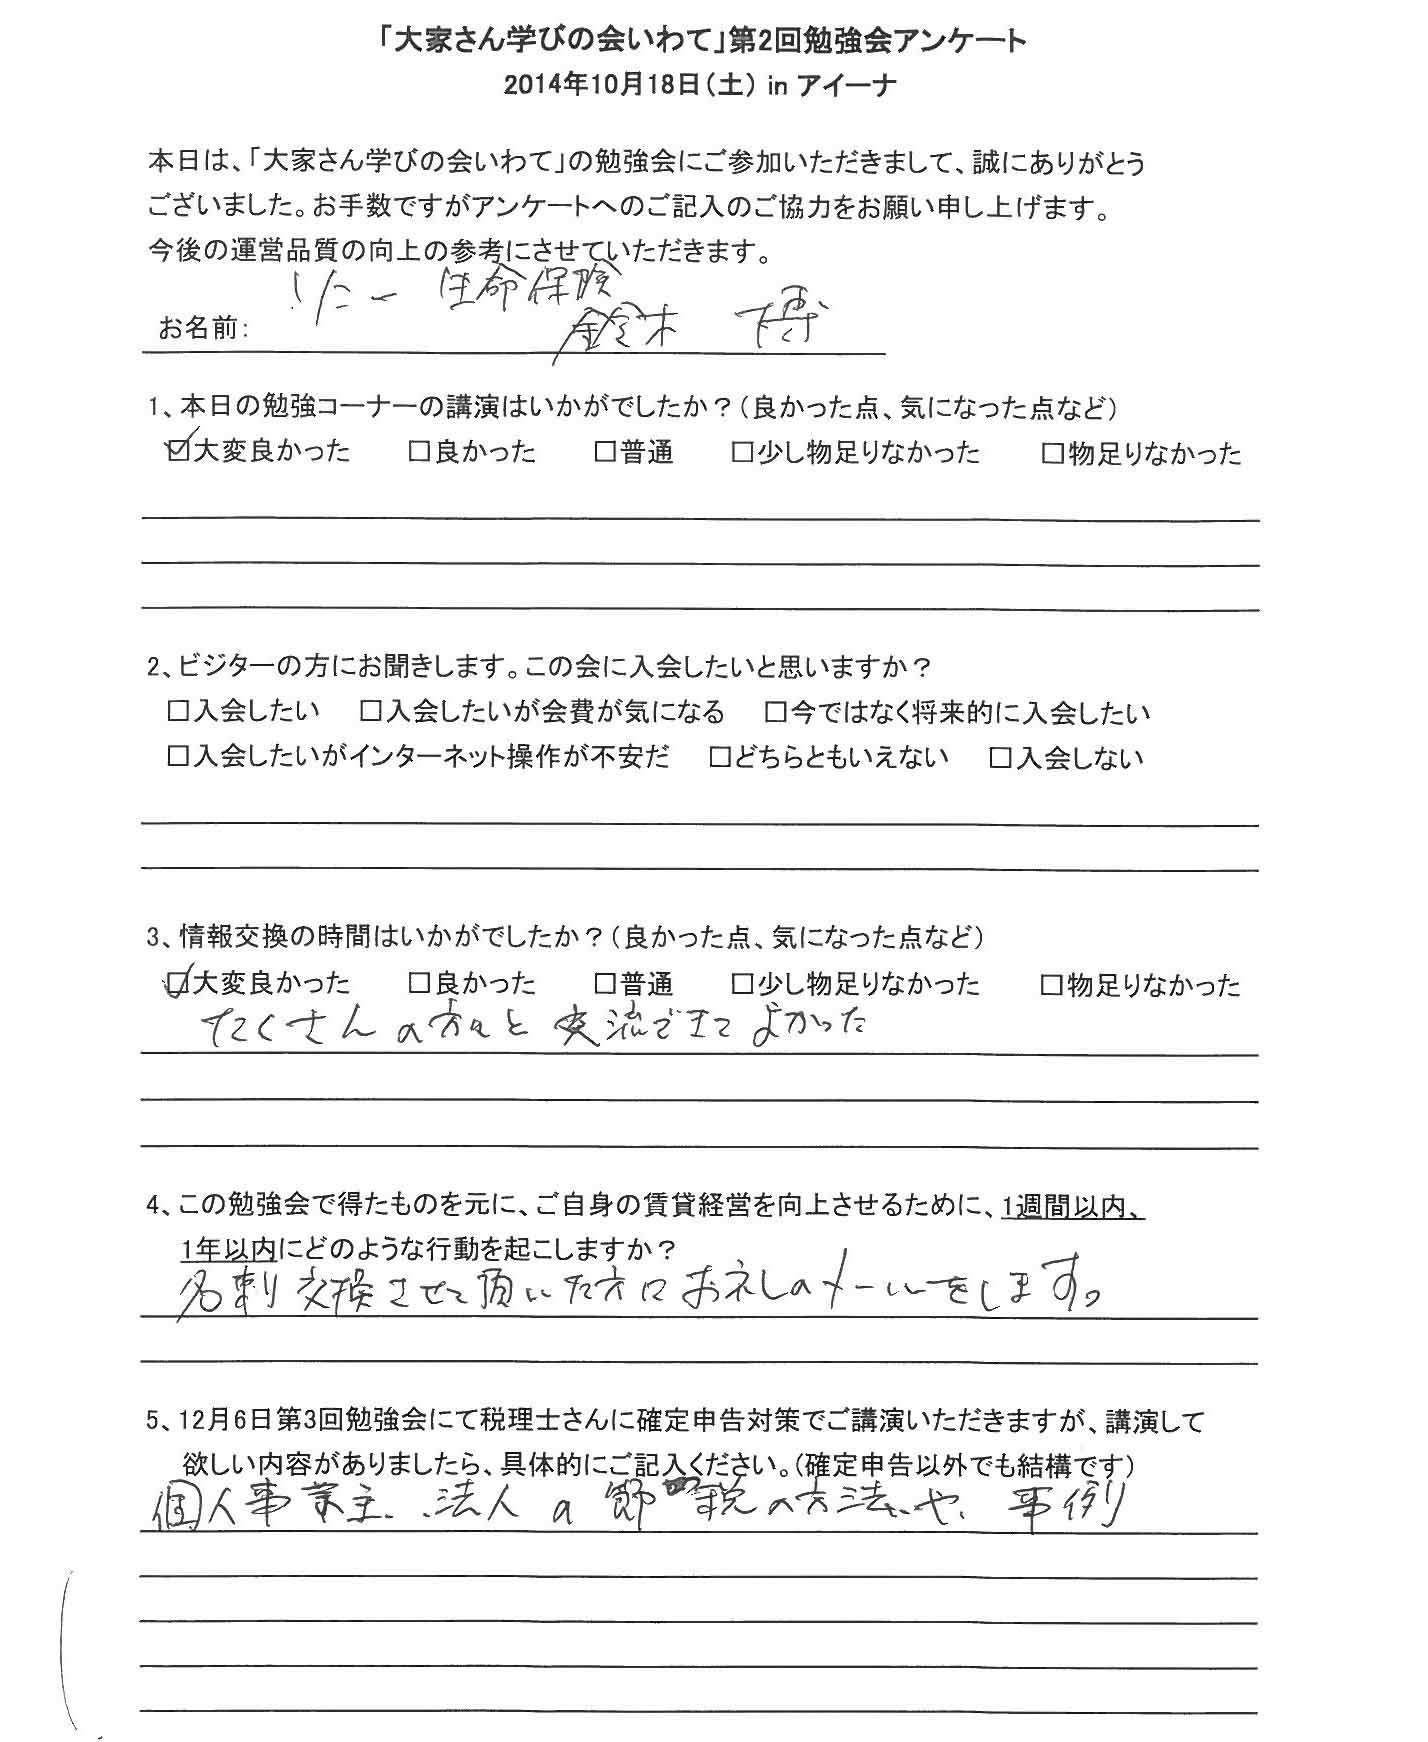 「大家さん学びの会いわて」第2回勉強会アンケート
2014年10月18日(土) in アイーナ
本日は、「大家さん学びの会いわて」の勉強会にご参加いただきまして、誠にありがとう
ございました。お手数ですがアンケートへのご記入のご協力をお願い申し上げます。
今後の運営品質の向上の参考にさせていただきます。
生命保険
お名前: 鈴木 博
1、本日の勉強コーナーの講演はいかがでしたか?(良かった点、気になった点など)
☑大変良かった □良かった □普通 □少し物足りなかった □物足りなかった
2、ビジターの方にお聞きします。この会に入会したいと思いますか?
□入会したい □入会したいが会費が気になる □今ではなく将来的に入会したい
□入会したいがインターネット操作が不安だ □どちらともいえない □入会しない
3、情報交換の時間はいかがでしたか?(良かった点、気になった点など)
☑大変良かった □良かった □普通 □少し物足りなかった □物足りなかった
たくさんの方々と交流できてよかった
4、この勉強会で得たものを元に、ご自身の賃貸経営を向上させるために、1週間以内、
1年以内にどのような行動を起こしますか?
名刺交換させて頂いた方にお礼のメールをします。
5、12月6日第3回勉強会にて税理士さんに確定申告対策でご講演いただきますが、講演して
欲しい内容がありましたら、具体的にご記入ください。(確定申告以外でも結構です)
個人事業主、法人の節税の方法や、事例